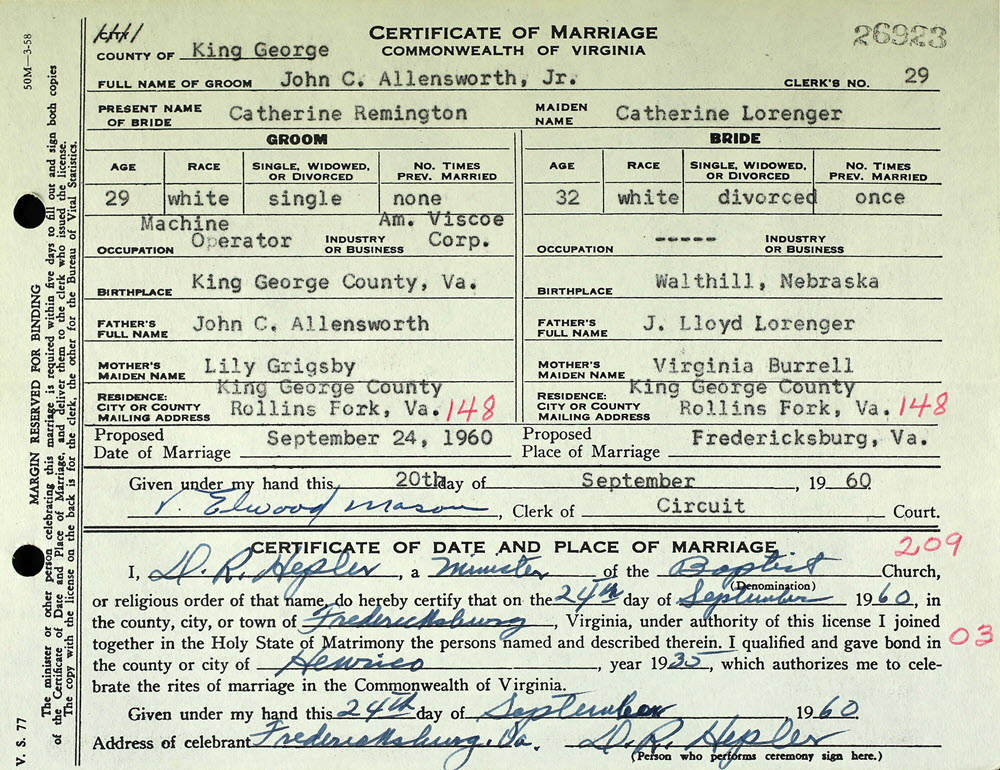 CERTIFICATE OF MARRIAGE
26923
COUNTY OF King George COMMONWEALTH OF VIRGINIA
FULL NAME OF GROOM John C. Allensworth, Jr. CLERK'S NO. 29
PRESENT NAME OF BRIDE Catherine Remington MAIDEN NAME Catherine Lorenger
GROOM BRIDE
AGE RACE SINGLE, WIDOWED, OR DIVORCED NO. TIMES PREV. MARRIED AGE RACE SINGLE, WIDOWED, OR DIVORCED NO. TIMES PREV. MARRIED
29 white single none 32 white divorced once
OCCUPATION Machine Operator INDUSTRY OR BUSINESS Am. Viscoe Corp. OCCUPATION ----- INDUSTRY OR BUSINESS
BIRTHPLACE King George County, Va. BIRTHPLACE Walthill, Nebraska
FATHER'S FULL NAME John C. Allensworth FATHER'S FULL NAME J. Lloyd Lorenger
MOTHER'S MAIDEN NAME Lily Grigsby MOTHER'S MAIDEN NAME Virginia Burrell
RESIDENCE: CITY OR COUNTY MAILING ADDRESS King George County Rollins Fork, Va. 148 RESIDENCE: CITY OR COUNTY MAILING ADDRESS King George County Rollins Fork, Va. 148
Proposed Date of Marriage September 24, 1960 Proposed Place of Marriage Fredericksburg, Va.
Given under my hand this 20th day of September, 19 60
Elwood Mason, Clerk of Circuit Court.
CERTIFICATE OF DATE AND PLACE OF MARRIAGE 209
I, D. R. Hepler, a Minister of the Baptist Church,
(Denomination)
or religious order of that name, do hereby certify that on the 24th day of September 1960, in
the county, city, or town of Fredericksburg, Virginia, under authority of this license I joined
together in the Holy State of Matrimony the persons named and described therein. I qualified and gave bond in 03
the county or city of Henrico, year 1935, which authorizes me to cele-
brate the rites of marriage in the Commonwealth of Virginia.
Given under my hand this 24th day of September 1960
Address of celebrant Fredericksburg, Va. D. R. Hepler
(Person who performs ceremony sign here.)
50M—3-58
MARGIN RESERVED FOR BINDING
The minister or other person celebrating this marriage is required within five days to fill out and sign both copies
of the Certificate of Date and Place of Marriage, and deliver them to the clerk who issued the license.
The copy with the license on the back is for the clerk, the other for the Bureau of Vital Statistics.
V. S. 77